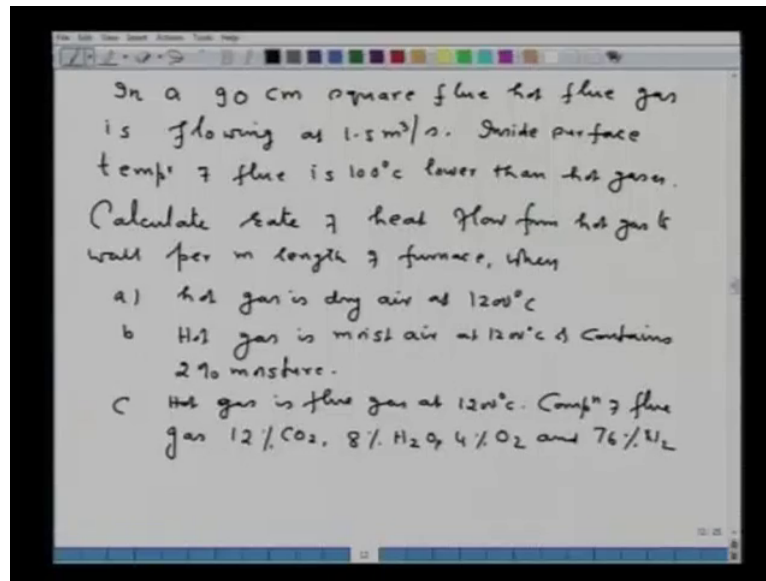 In a 90 cm square flue hot flue gas
is flowing at 1.5 m³/s. Inside surface
tempr of flue is 100°c lower than hot gases.
Calculate rate of heat flow from hot gas to
wall per m length of furnace, when
a) hot gas is dry air at 1200°C
b Hot gas is moist air at 1200°C & contains
2% moisture.
C Hot gas is flue gas at 1200°C. Compn of flue
gas 12% CO2, 8% H2O, 4% O2 and 76% N2
12